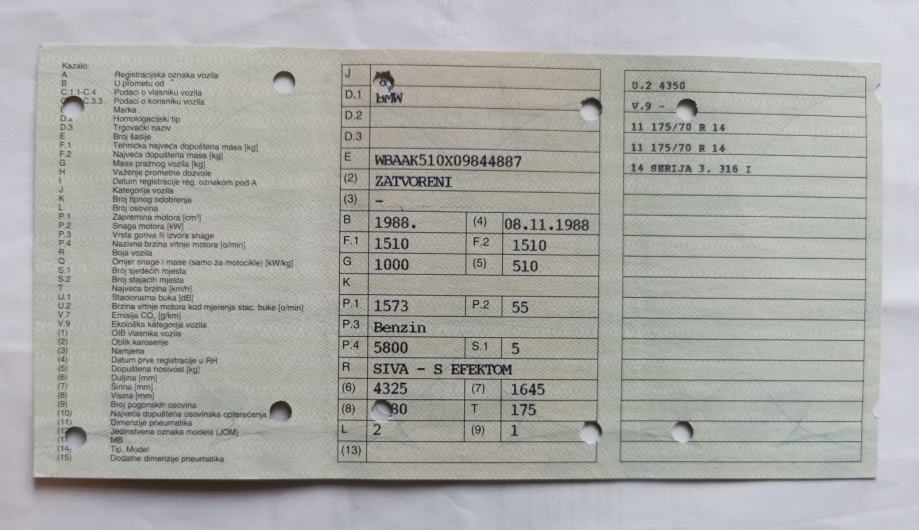 Kazalo:
A Registracijska oznaka vozila
B U prometu od
C.1.1-C.4 Podaci o vlasniku vozila
C.3.3. Podaci o korisniku vozila
Marka
D.2 Homologacijski tip
D.3 Trgovački naziv
E Broj šasije
F.1 Tehnička najveća dopuštena masa [kg]
F.2 Najveća dopuštena masa [kg]
G Masa praznog vozila [kg]
H Važenje prometne dozvole
I Datum registracije reg. oznakom pod A
J Kategorija vozila
K Broj tipnog odobrenja
L Broj osovina
P.1 Zapremina motora [cm³]
P.2 Snaga motora [kW]
P.3 Vrsta goriva ili izvora snage
P.4 Nazivna brzina vrtnje motora [o/min]
R Boja vozila
Q Omjer snage i mase (samo za motocikle) [kW/kg]
S.1 Broj sjedećih mjesta
S.2 Broj stajaćih mjesta
T Najveća brzina [km/h]
U.1 Stacionarna buka [dB]
U.2 Brzina vrtnje motora kod mjerenja stac. buke [o/min]
V.7 Emisija CO₂ [g/km]
V.9 Ekološka kategorija vozila
(1) OIB vlasnika vozila
(2) Oblik karoserije
(3) Namjena
(4) Datum prve registracije u RH
(5) Dopuštena nosivost [kg]
(6) Duljina [mm]
(7) Širina [mm]
(8) Visina [mm]
(9) Broj pogonskih osovina
(10) Najveća dopuštena osovinska opterećenja
(11) Dimenzije pneumatika
Jedinstvena oznaka modela (JOM)
MB
(14) Tip, Model
(15) Dodatne dimenzije pneumatika
J
D.1 BMW
D.2
D.3
E WBAAK510X09844887
(2) ZATVORENI
(3) –
B 1988. (4) 08.11.1988
F.1 1510 F.2 1510
G 1000 (5) 510
K
P.1 1573 P.2 55
P.3 Benzin
P.4 5800 S.1 5
R SIVA - S EFEKTOM
(6) 4325 (7) 1645
(8) 80 T 175
L 2 (9) 1
(13)
U.2 4350
V.9 -
11 175/70 R 14
11 175/70 R 14
14 SERIJA 3. 316 I